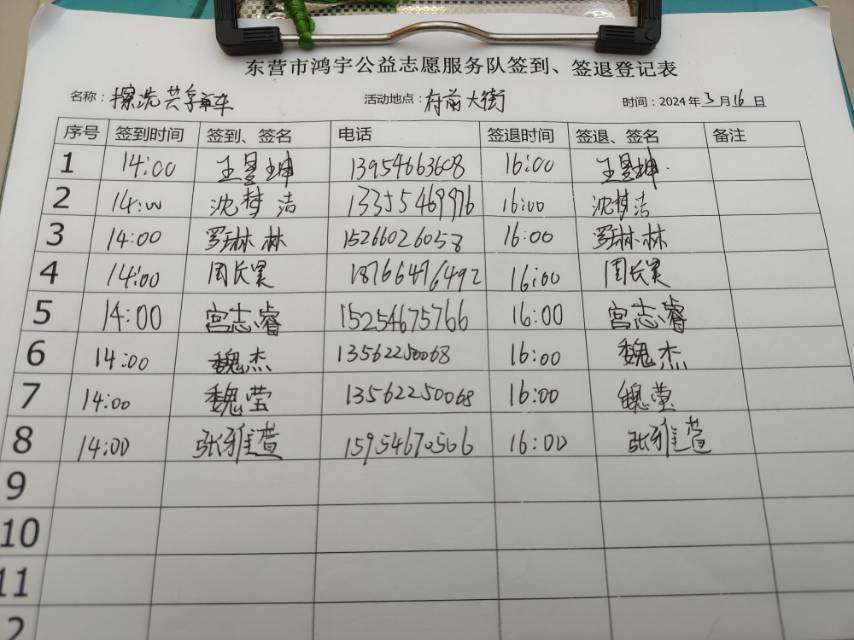 东营市鸿宇公益志愿服务队签到、签退登记表
名称：擦洗共享单车 活动地点：府前大街 时间：2024年3月16日
序号 签到时间 签到、签名 电话 签退时间 签退、签名 备注
1 14:00 王星坤 13954663608 16:00 王星坤
2 14:00 沈梦洁 13355469976 16:00 沈梦洁
3 14:00 罗琳林 15266026058 16:00 罗琳林
4 14:00 周长昊 18766496492 16:00 周长昊
5 14:00 宫志睿 15254675766 16:00 宫志睿
6 14:00 魏杰 13562250068 16:00 魏杰
7 14:00 魏莹 13562250068 16:00 魏莹
8 14:00 张雅萱 15954670506 16:00 张雅萱
9
10
11
2